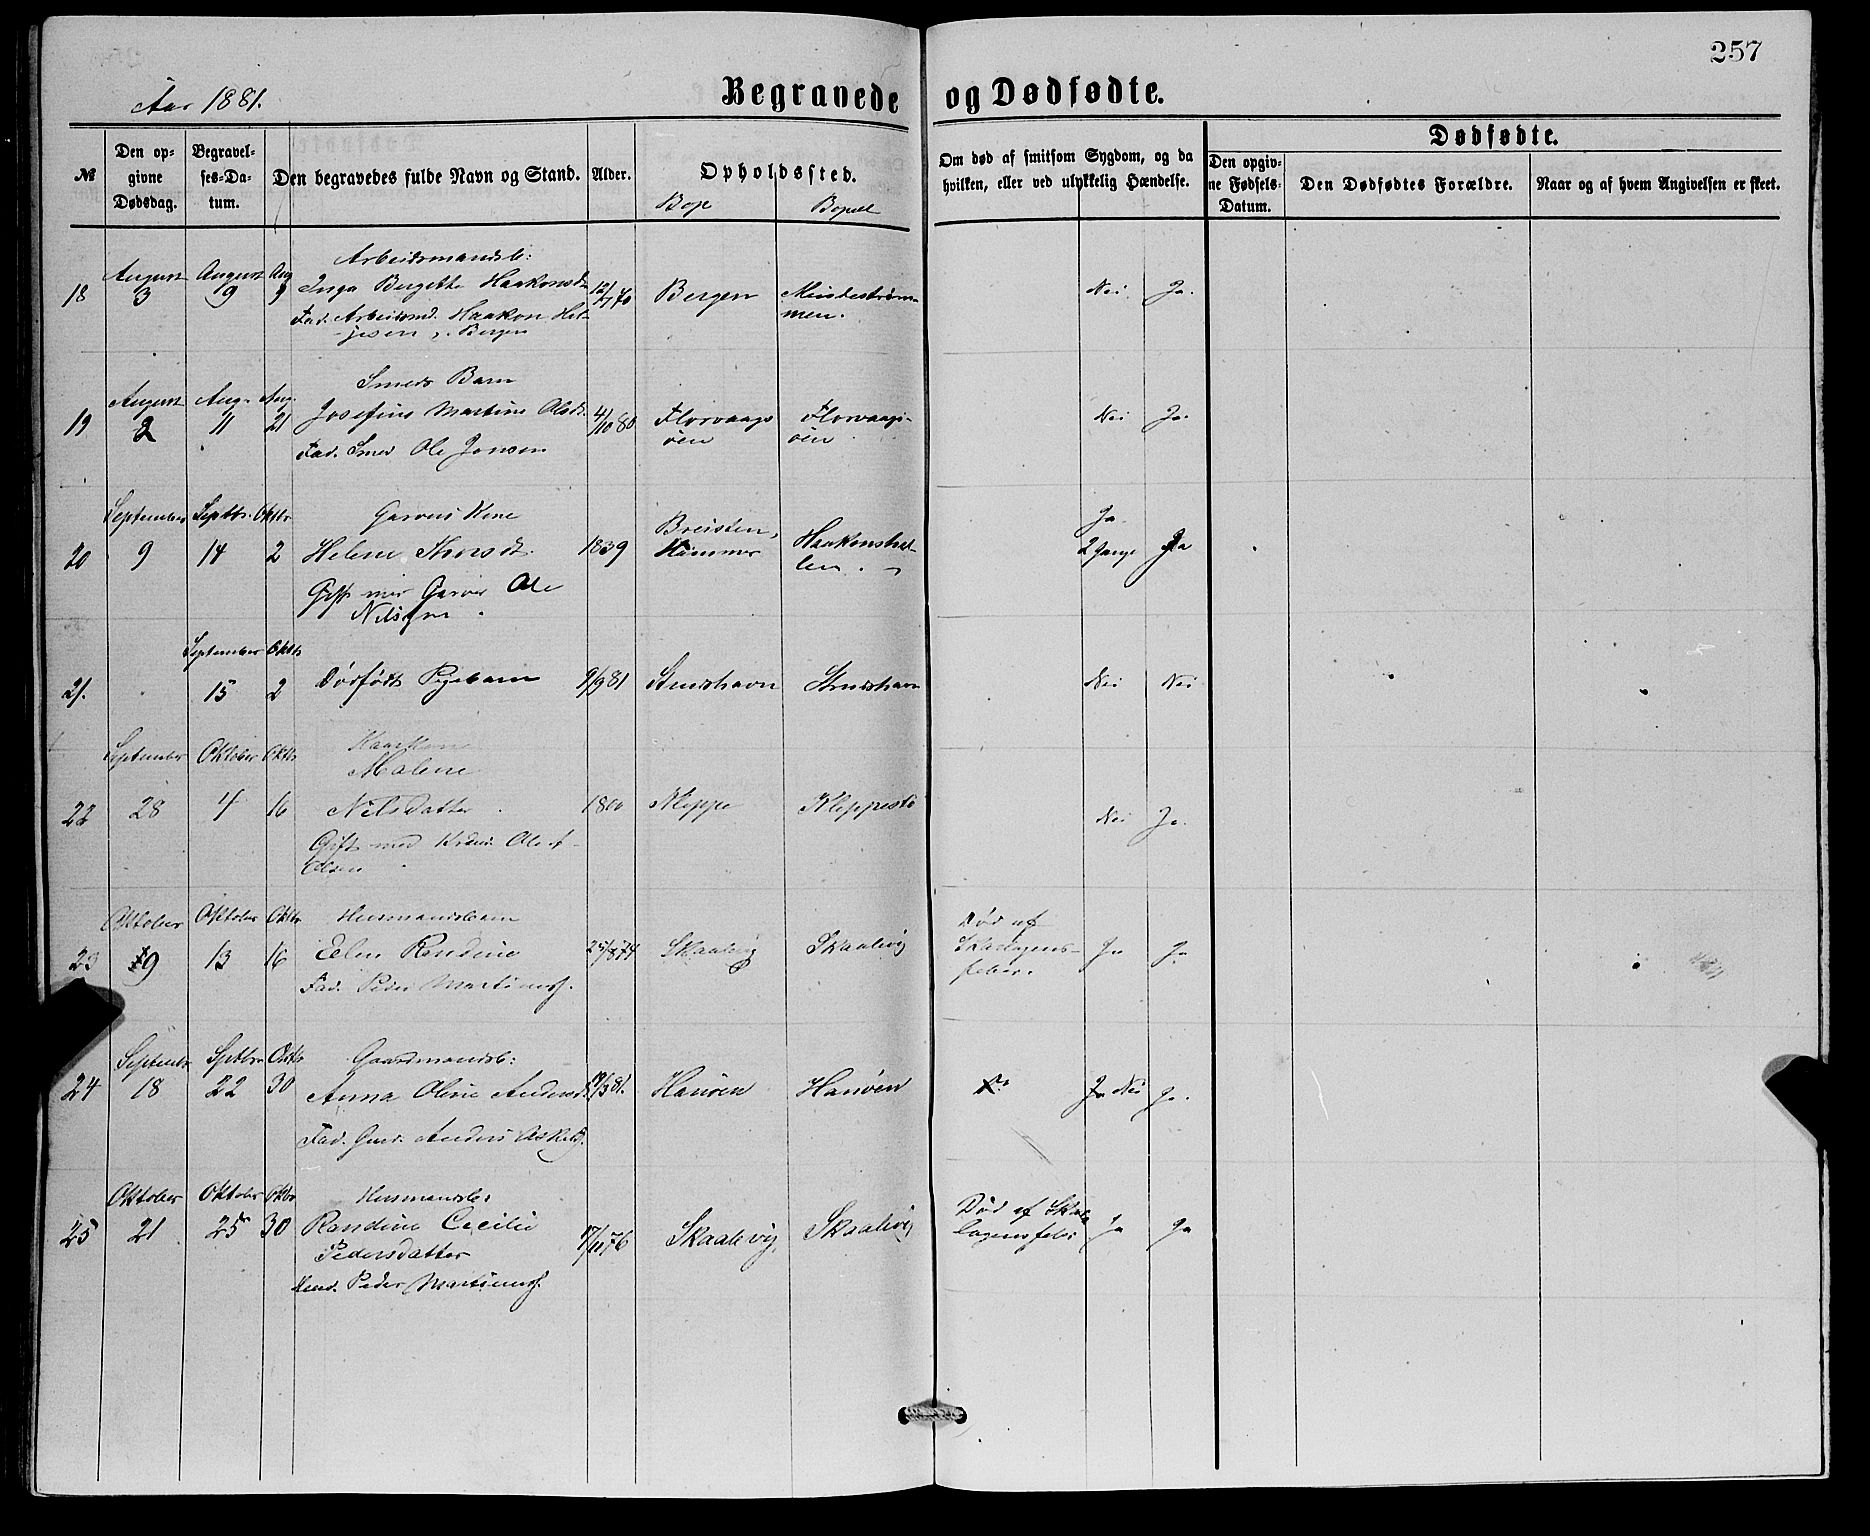 257
Aar 1881.
Begravede og Dødfødte.
№
Den opgivne Dødsdag.
Begravelses-Datum.
Den begravedes fulde Navn og Stand.
Alder.
Opholdssted.
Om død af smitsom Sygdom, og da hvilken, eller ved ulykkelig Hændelse.
Dødfødte.
Den opgivne Fødsels-Datum.
Den Dødfødtes Forældre.
Naar og af hvem Angivelsen er skeet.
18 August 3 August 9 Aug 9
Arbeidsmandsb:
Inga Bergitte Haakonsd.
12/7 70 Bergen
Nei. Ja.
Fad. Arbeidsmd. Haakon Hel-
jesen, Bergen
19 August 2 Aug. 11 Aug. 21
Smeds Barn
Josefine Martine Olsdt.
4/10 80 Florvaags
øen
Florvaags-
øen
Nei Ja.
Fad. Smed Ole Jansen
20 September 9 Septbr. 14 Oktbr 2
Garvers Kone
Helene Thorsdt.
1839 Breisten,
Hammer
Ja.
2 Gange Ja
Gift med Garver Ole
Nilsen
21. September 15 Oktb 2
Dødfødt Pigebarn
9/9 81
Nei Nei
22 September 28 Oktober 4 Oktbr 16
Malene
Nilsdatter
1800 Kleppe Kleppestø
Nei Ja.
Gift med
Olsen
23 Oktober 9 Oktober 13 Oktbr 16
Husmandsbarn
Elen Randine
25/8 74 Skaalevig Skaalevig
Død af
Skarlagens-
feber.
Ja Ja
Fad. Peder Martinuss.
24 Septembr 18 Septbr 22 Oktb 30
Gaardmandsb:
Anna Oline Andersd.
/3 81. Hanøen Hanøen
Ja Nei Ja.
Fad. Gmd. Anders Askels.
25 Oktober 21 Oktober 25 Oktbr 30
Husmandsb:
Randine Cecilie
Pedersdatter
17/11 76 Skaalevig, Skaalevig
Død af Skar
lagensfeber
Ja Ja
Peder Martinuss.